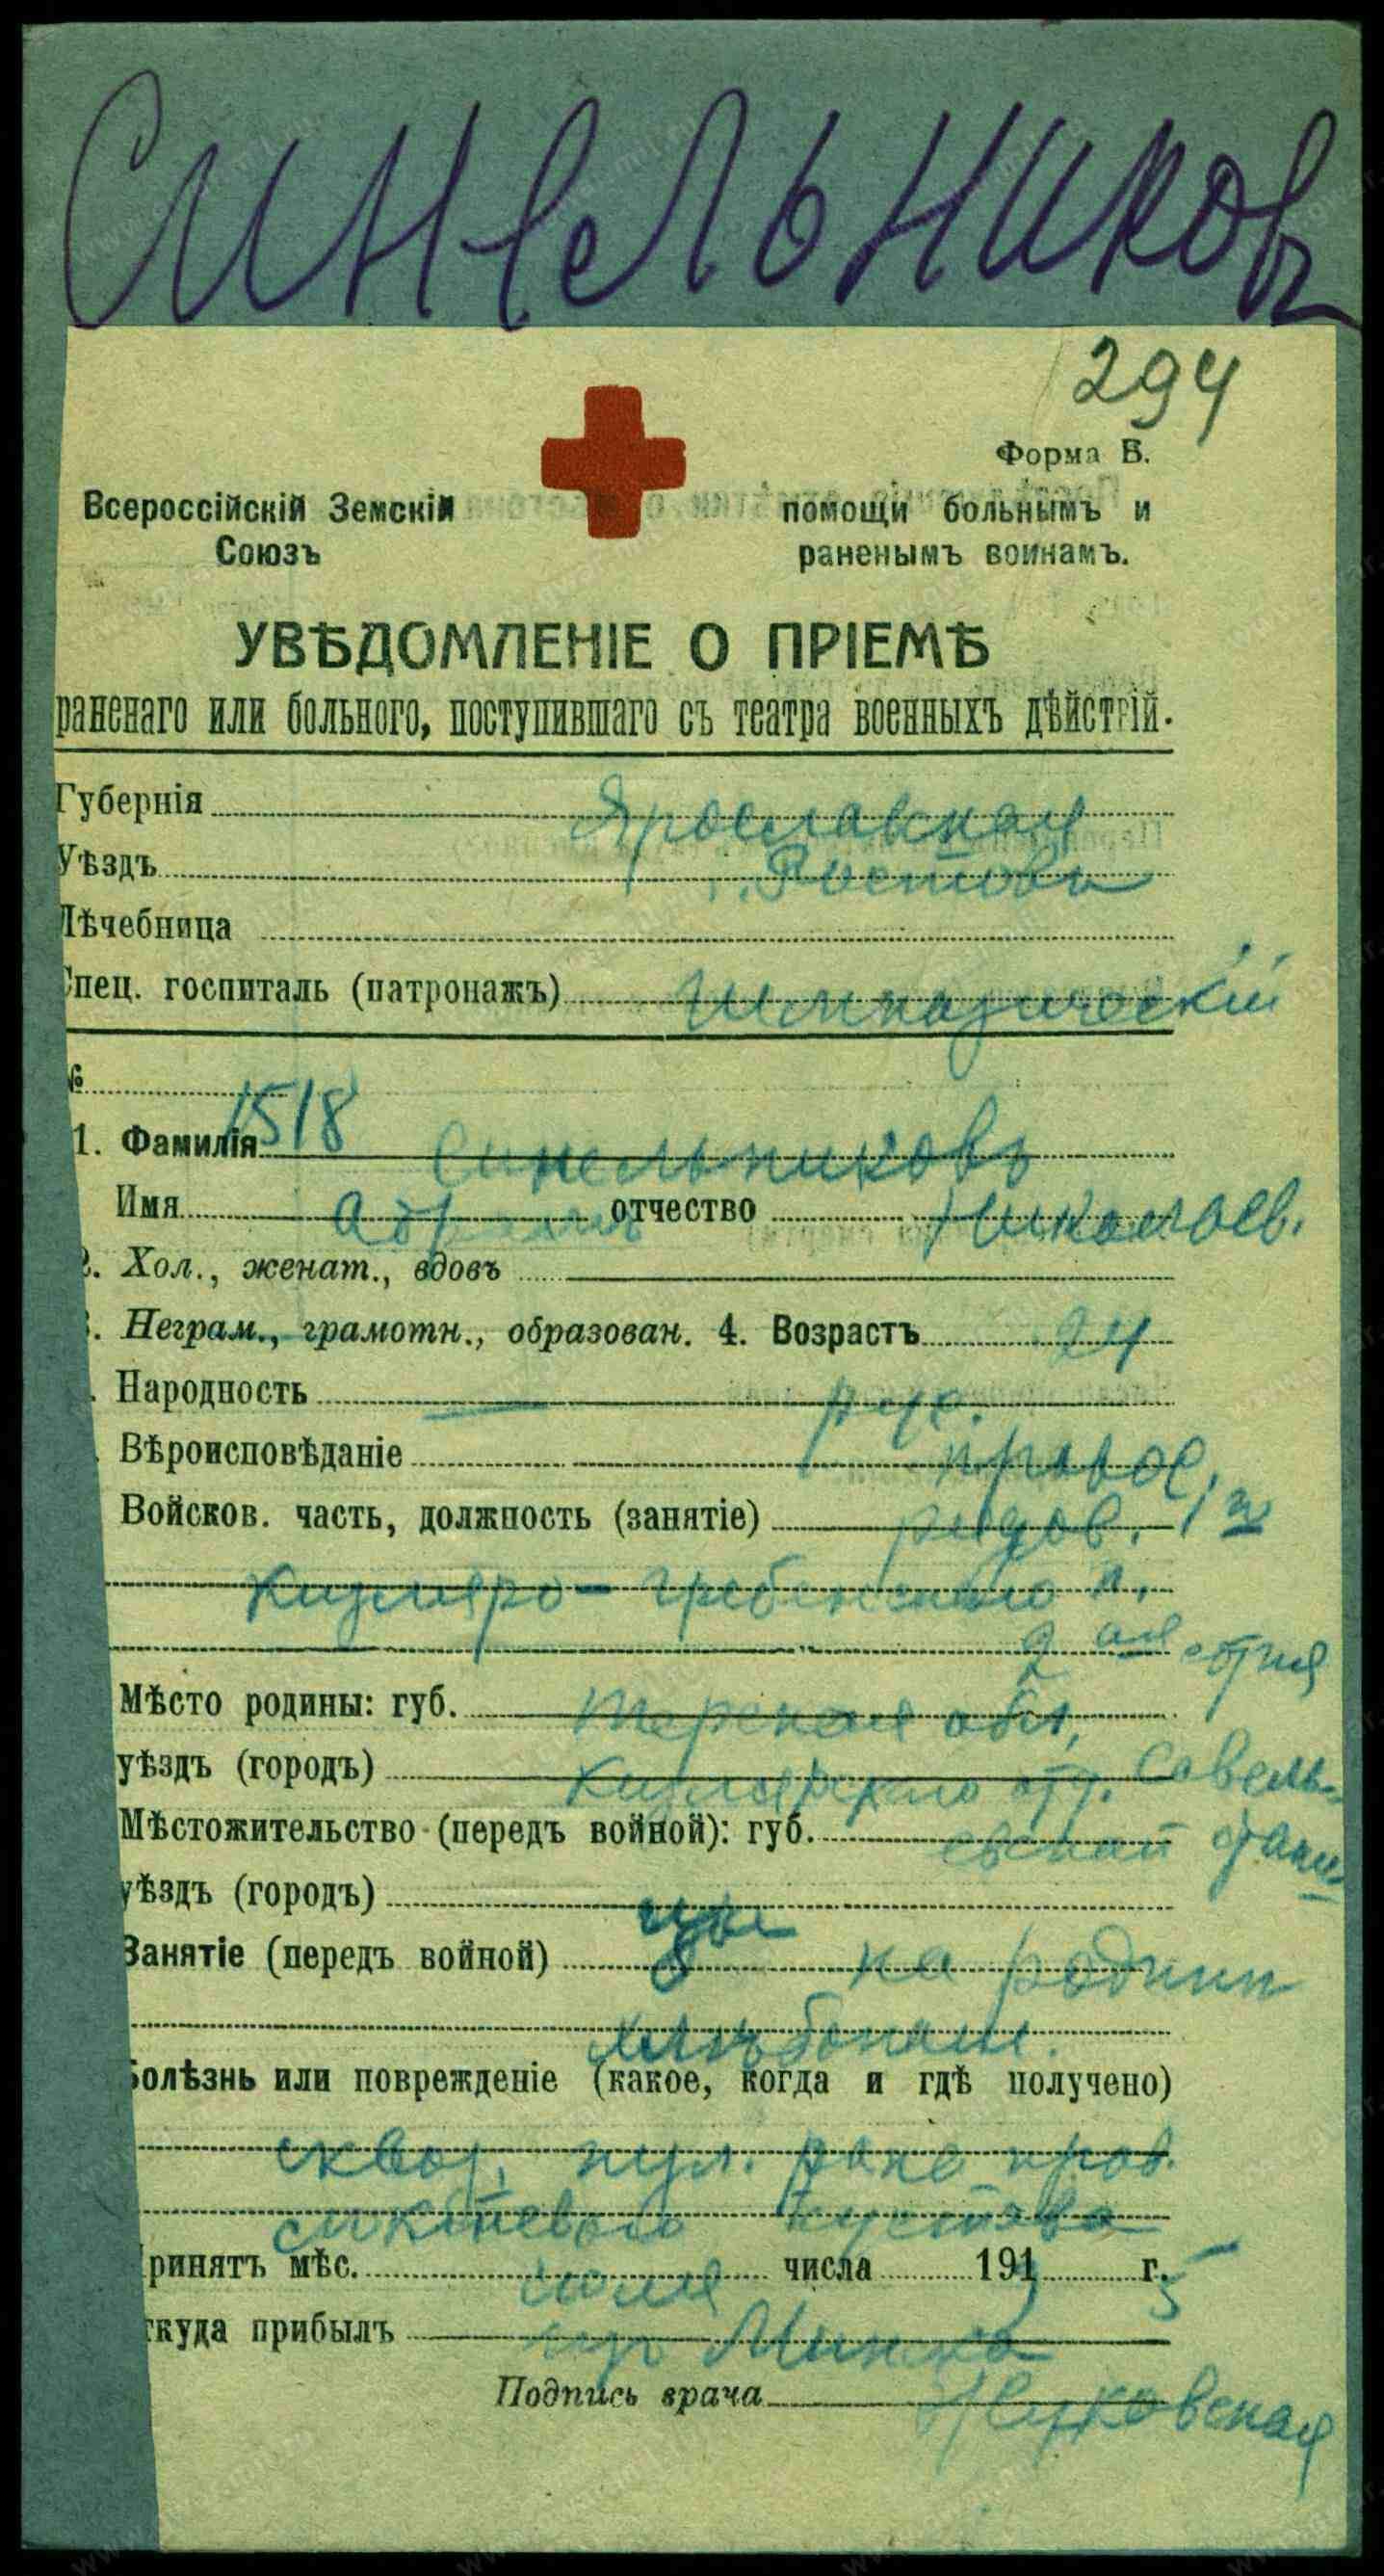 Синельников
294
Форма Б.
Всероссійскій Земскій
Союзъ
помощи больнымъ и
раненымъ воинамъ.
УВѢДОМЛЕНІЕ О ПРІЕМѢ
раненаго или больного, поступившаго съ театра военныхъ дѣйствій.
Губернія Ярославская
Уѣздъ г. Ростовъ
Лѣчебница
Спец. госпиталь (патронажъ)
№ 1518
1. Фамилія Синельниковъ
Имя отчество Николаев.
2. Хол., женат., вдовъ
3. Неграм., грамотн., образован. 4. Возрастъ 24
Народность рус.
Вѣроисповѣданіе правос.
Войсков. часть, должность (занятіе) рядов. 1го
Кизляро-Гребенского п.
2 ая сотня
Мѣсто родины: губ. Терская обл.
уѣздъ (городъ) Кизлярскаго отд. Савель-
Мѣстожительство (передъ войной): губ. евской стани-
уѣздъ (городъ) цы
Занятіе (передъ войной) на родинѣ
хлѣбопаш.
Болѣзнь или поврежденіе (какое, когда и гдѣ получено)
сквоз. пул. рана прав.
локтевого сустава
Принятъ мѣс. іюля числа 1915 г.
Откуда прибылъ изъ Минска
Подпись врача Жуковская